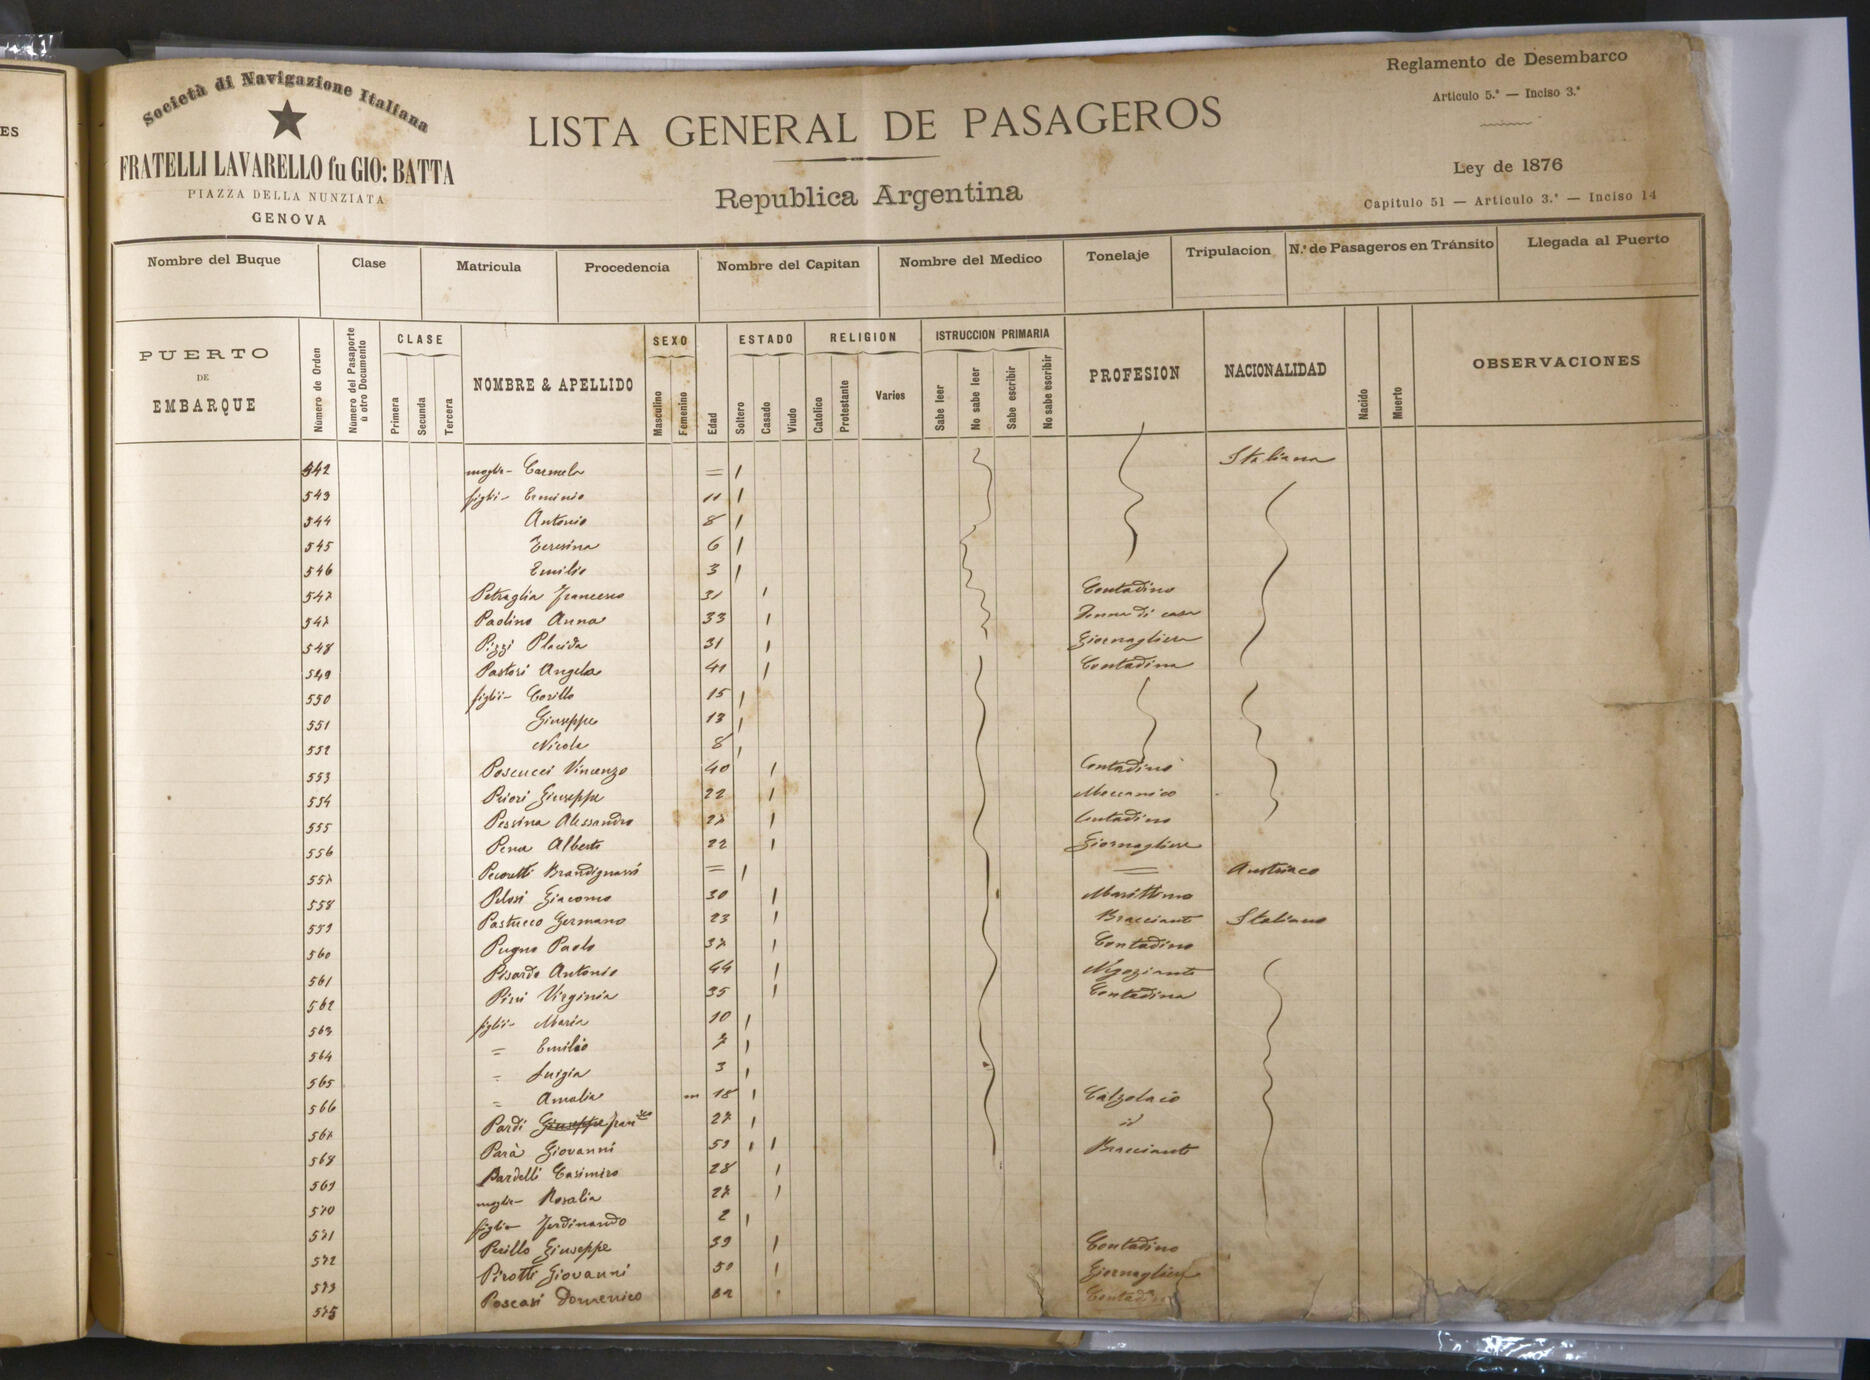 ES
Società di Navigazione Italiana
FRATELLI LAVARELLO fu GIO: BATTA
PIAZZA DELLA NUNZIATA
GENOVA
LISTA GENERAL DE PASAGEROS
Republica Argentina
Reglamento de Desembarco
Articulo 5.° — Inciso 3.°
Ley de 1876
Capitulo 51 — Articulo 3.° — Inciso 14
Nombre del Buque Clase Matricula Procedencia Nombre del Capitan Nombre del Medico Tonelaje Tripulacion N.° de Pasageros en Tránsito Llegada al Puerto
PUERTO DE EMBARQUE
Número de Orden
Número del Pasaporte ù otro Documento
CLASE
Primera Secunda Tercera
NOMBRE & APELLIDO
SEXO
Masculino Femenino
Edad
ESTADO
Soltero Casado Viudo
RELIGION
Catolico Protestante Varios
ISTRUCCION PRIMARIA
Sabe leer No sabe leer Sabe escribir No sabe escribir
PROFESION
NACIONALIDAD
Nacido
Muerto
OBSERVACIONES
542 moglie - Carmela = / Italiana
543 figli - Erminio 11 /
544 Antonio 8 /
545 Teresina 6 /
546 Emilio 3 /
547 Petraglia Francesco 31 / Contadino
547 Paolino Anna 33 / Donna di casa
548 Pizzi Placida 31 / Giornagliera
549 Pastori Angela 41 / Contadina
550 figlii - 15 /
551 Giuseppe 13 /
552 Nicola 8 /
553 Poscucci Vincenzo 40 / Contadino
554 Priori Giuseppe 22 / Meccanico
555 Pessina Alessandro 27 / Contadino
556 Pena Alberto 22 / Giornagliere
557 = / = Austriaco
558 Pelosi Giacomo 30 / Marittimo
559 Pastucco Germano 23 / Bracciante Italiano
560 Pugno Paolo 37 / Contadino
561 Pisardo Antonio 44 / Negoziante
562 Virginia 35 / Contadina
563 figlii - Maria 10 /
564 = Emilio 7 /
565 = Luigia 3 /
566 = Amalia m 18 / Calzolaio
567 Pardi Giuseppe Fran.sco 27 / id
568 Parà Giovanni 59 / / Bracciante
569 Pardelli Casimiro 28 /
570 moglie - Rosalia 27 /
571 figlio - Ferdinando 2 /
572 Perillo Giuseppe 39 / Contadino
573 Pirotti Giovanni 50 / Giornagliere
575 Poscasi Domenico